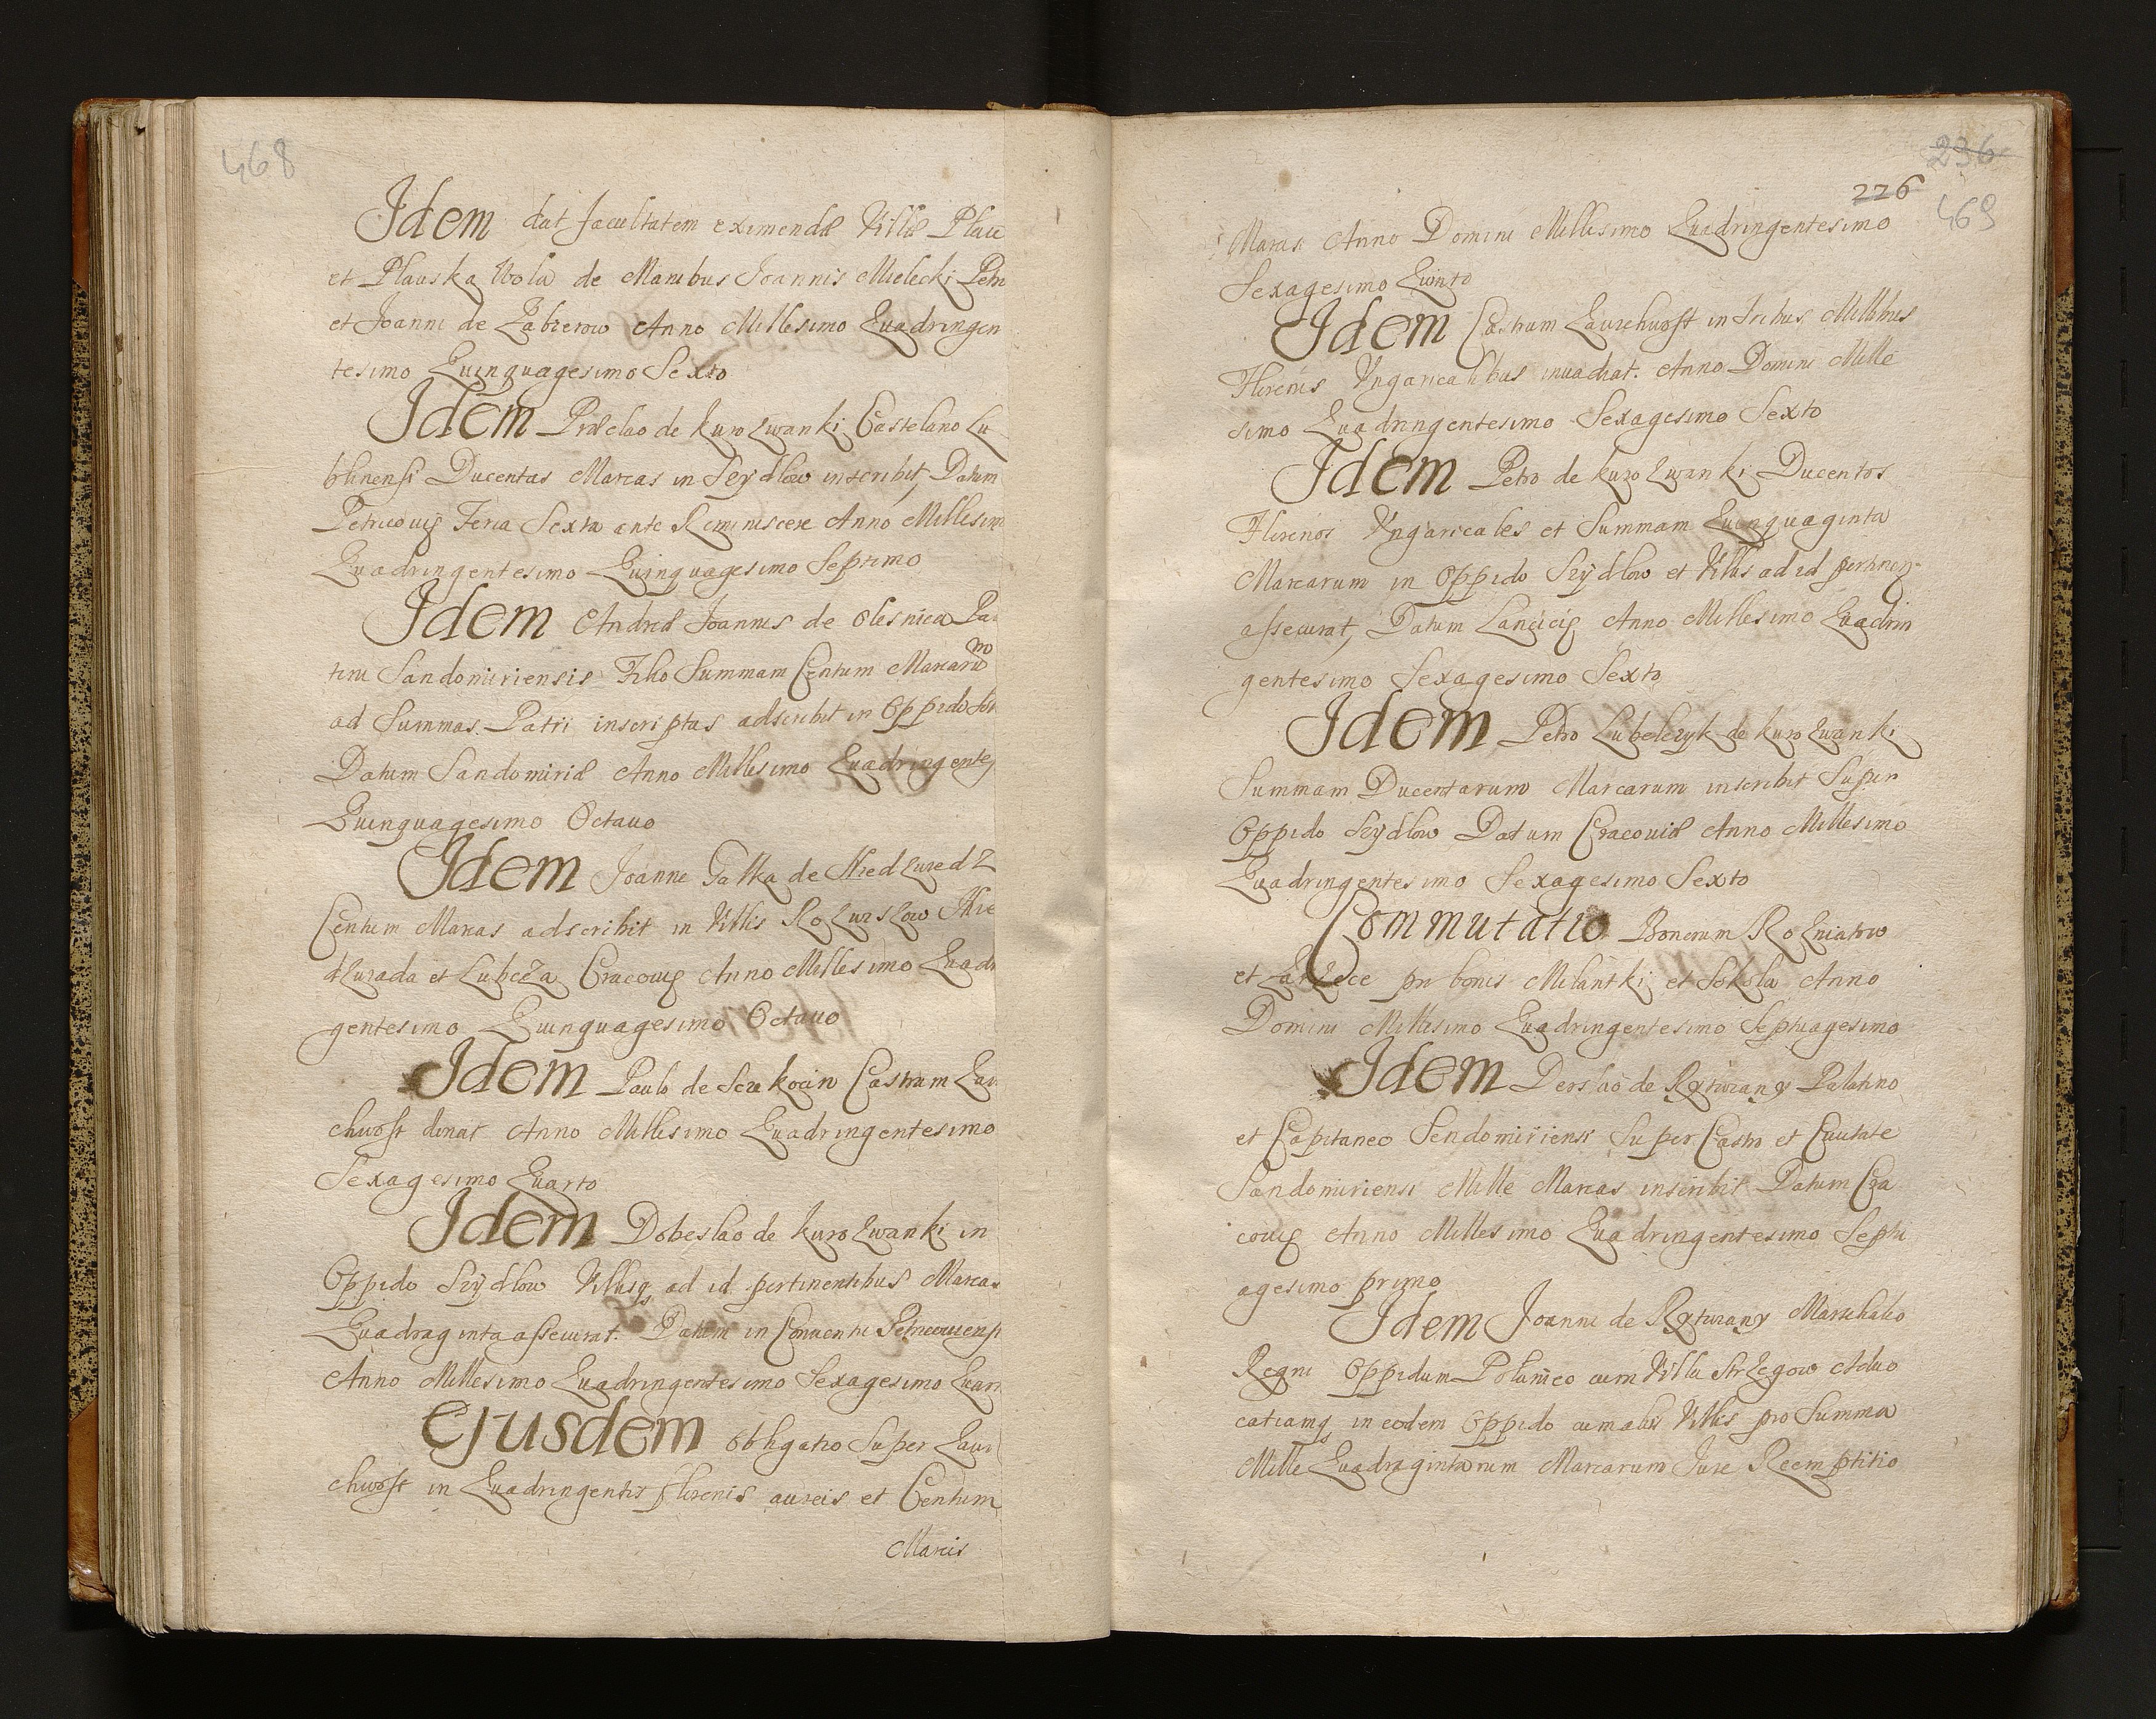 468
Idem dat facultatem eximendæ Villæ Plau
et Plauska Wola de Manibus Joannis Mielecki Petro
et Joanni de Zabierow Anno Millesimo Quadringen
tesimo Quinquagesimo Sexto
Idem Prælao de Kurozwanki Castelano Lu
blinensi Ducentas Marcas in Szydlow inscribit, Datum
Petricoviæ Feria Sexta ante Reminiscere Anno Millesim
Quadringentesimo Quinquagesimo Septimo
Idem Andreæ Joannis de Olesnica Pa
tini Sandomiriensis Filio Summam Centum Marcarum
ad Summas Patri inscriptas adscribit in Oppido
Datum Sandomiriæ Anno Millesimo Quadringente
Quinquagesimo Octavo
Idem Joanne Galka de Niedzwedz
Centum Marcas adscribit in Villis Rozwizlow Nie
dzwiada et Lubcza Cracoviæ Anno Millesimo Quadri
gentesimo Quinquagesimo Octavo
Idem Paulo de Szekocin Castrum Zaw
chwost donat Anno Millesimo Quadringentesimo
Sexagesimo Quarto
Idem Dobeslao de Kurozwanki in
Oppido Szydlow Villisq ad id pertinentibus Marcas
Quadraginta assecurat. Datum in Conventu Petricouiensi
Anno Millesimo Quadringentesimo Sexagesimo Quart
Ejusdem obligatio Super Zawi
chwost in Quadringentis florenis aureis et Centum
Marcis
236
226
469
Marcas Anno Domini Millesimo Quadringentesimo
Sexagesimo Quinto
Idem Castrum Zawichwost in Tribus Millibus
Florenis Ungaricalibus invadiat. Anno Domini Mille
simo Quadringentesimo Sexagesimo Sexto
Idem Petro de Kurozwanki Ducentos
Florenos Ungaricales et Summam Quinquaginta
Marcarum in Oppido Szydlow et Villis ad id pertinen
assecurat, Datum Lanciciæ Anno Millesimo Quadrin
gentesimo Sexagesimo Sexto
Idem Petro Lubelczyk de Kurozwanki
Summam Ducentarum Marcarum inscribit Super
Oppido Szydlow Datum Cracoviæ Anno Millesimo
Quadringentesimo Sexagesimo Sexto
Commutatio Bonorum Rozniatow
et Zarzece pro bonis Milantki et Sokola Anno
Domini Millesimo Quadringentesimo Septuagesimo
Idem Derslao de Rytwiany Palatino
et Capitaneo Sendomiriensi Super Castro et Civitate
Sandomiriensi Mille Marcas inscribit Datum Cra
coviæ Anno Millesimo Quadringentesimo Septu
agesimo primo
Idem Joanni de Rytwiany Marschalio
Regni Oppidum Polaniec cum Villa Strzegow Advo
catiamq in eodem Oppido cum aliis Villis pro Summa
Mille Quadragintarum Marcarum Jure Reemptitio